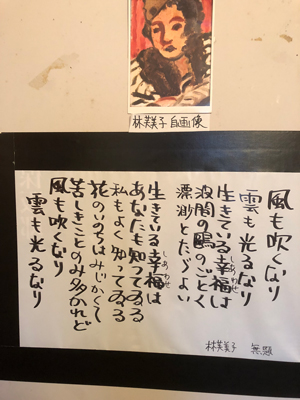 林芙美子 自画像
風も吹くなり
雲も光るなり
生きている幸福は
しあわせ
波間の鴎のごとく
漂渺とたゞよい
生きている幸福は
しあわせ
あなたも知ってゐる
私もよく知ってゐる
花のいのちはみじかくて
苦しきことのみ多かれど
風も吹くなり
雲も光るなり
林芙美子 無題